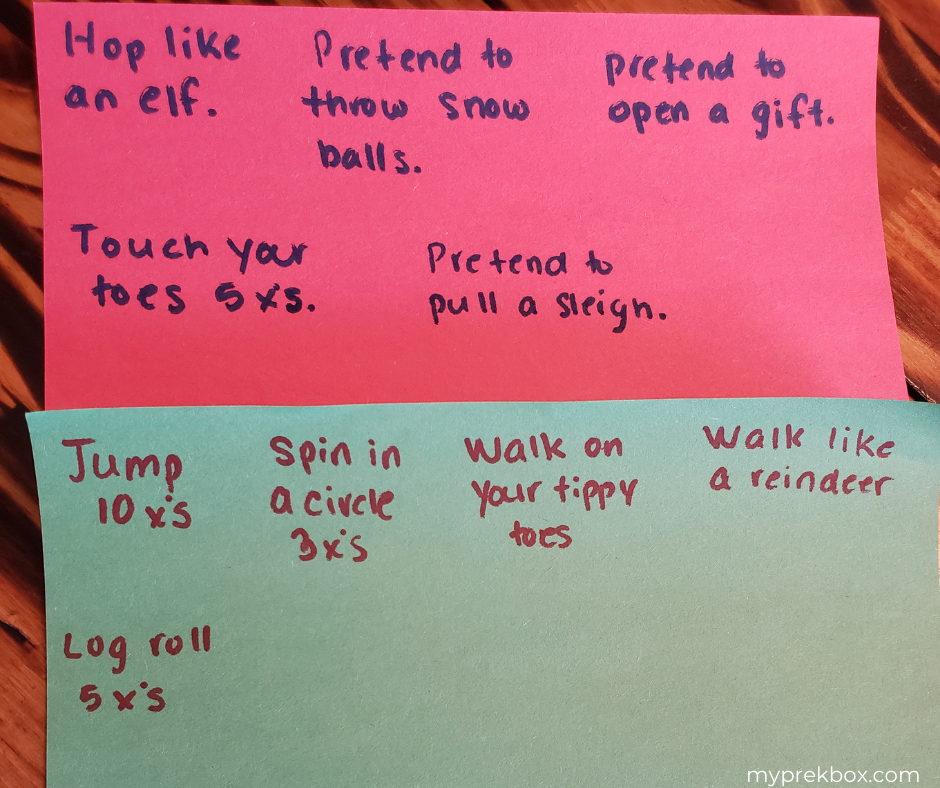 Hop like
an elf.
Pretend to
throw snow
balls.
pretend to
open a gift.
Touch your
toes 5 x's.
Pretend to
pull a sleigh.
Jump
10 x's
Spin in
a circle
3x's
Walk on
your tippy
toes
Walk like
a reindeer
Log roll
5 x's
myprekbox.com